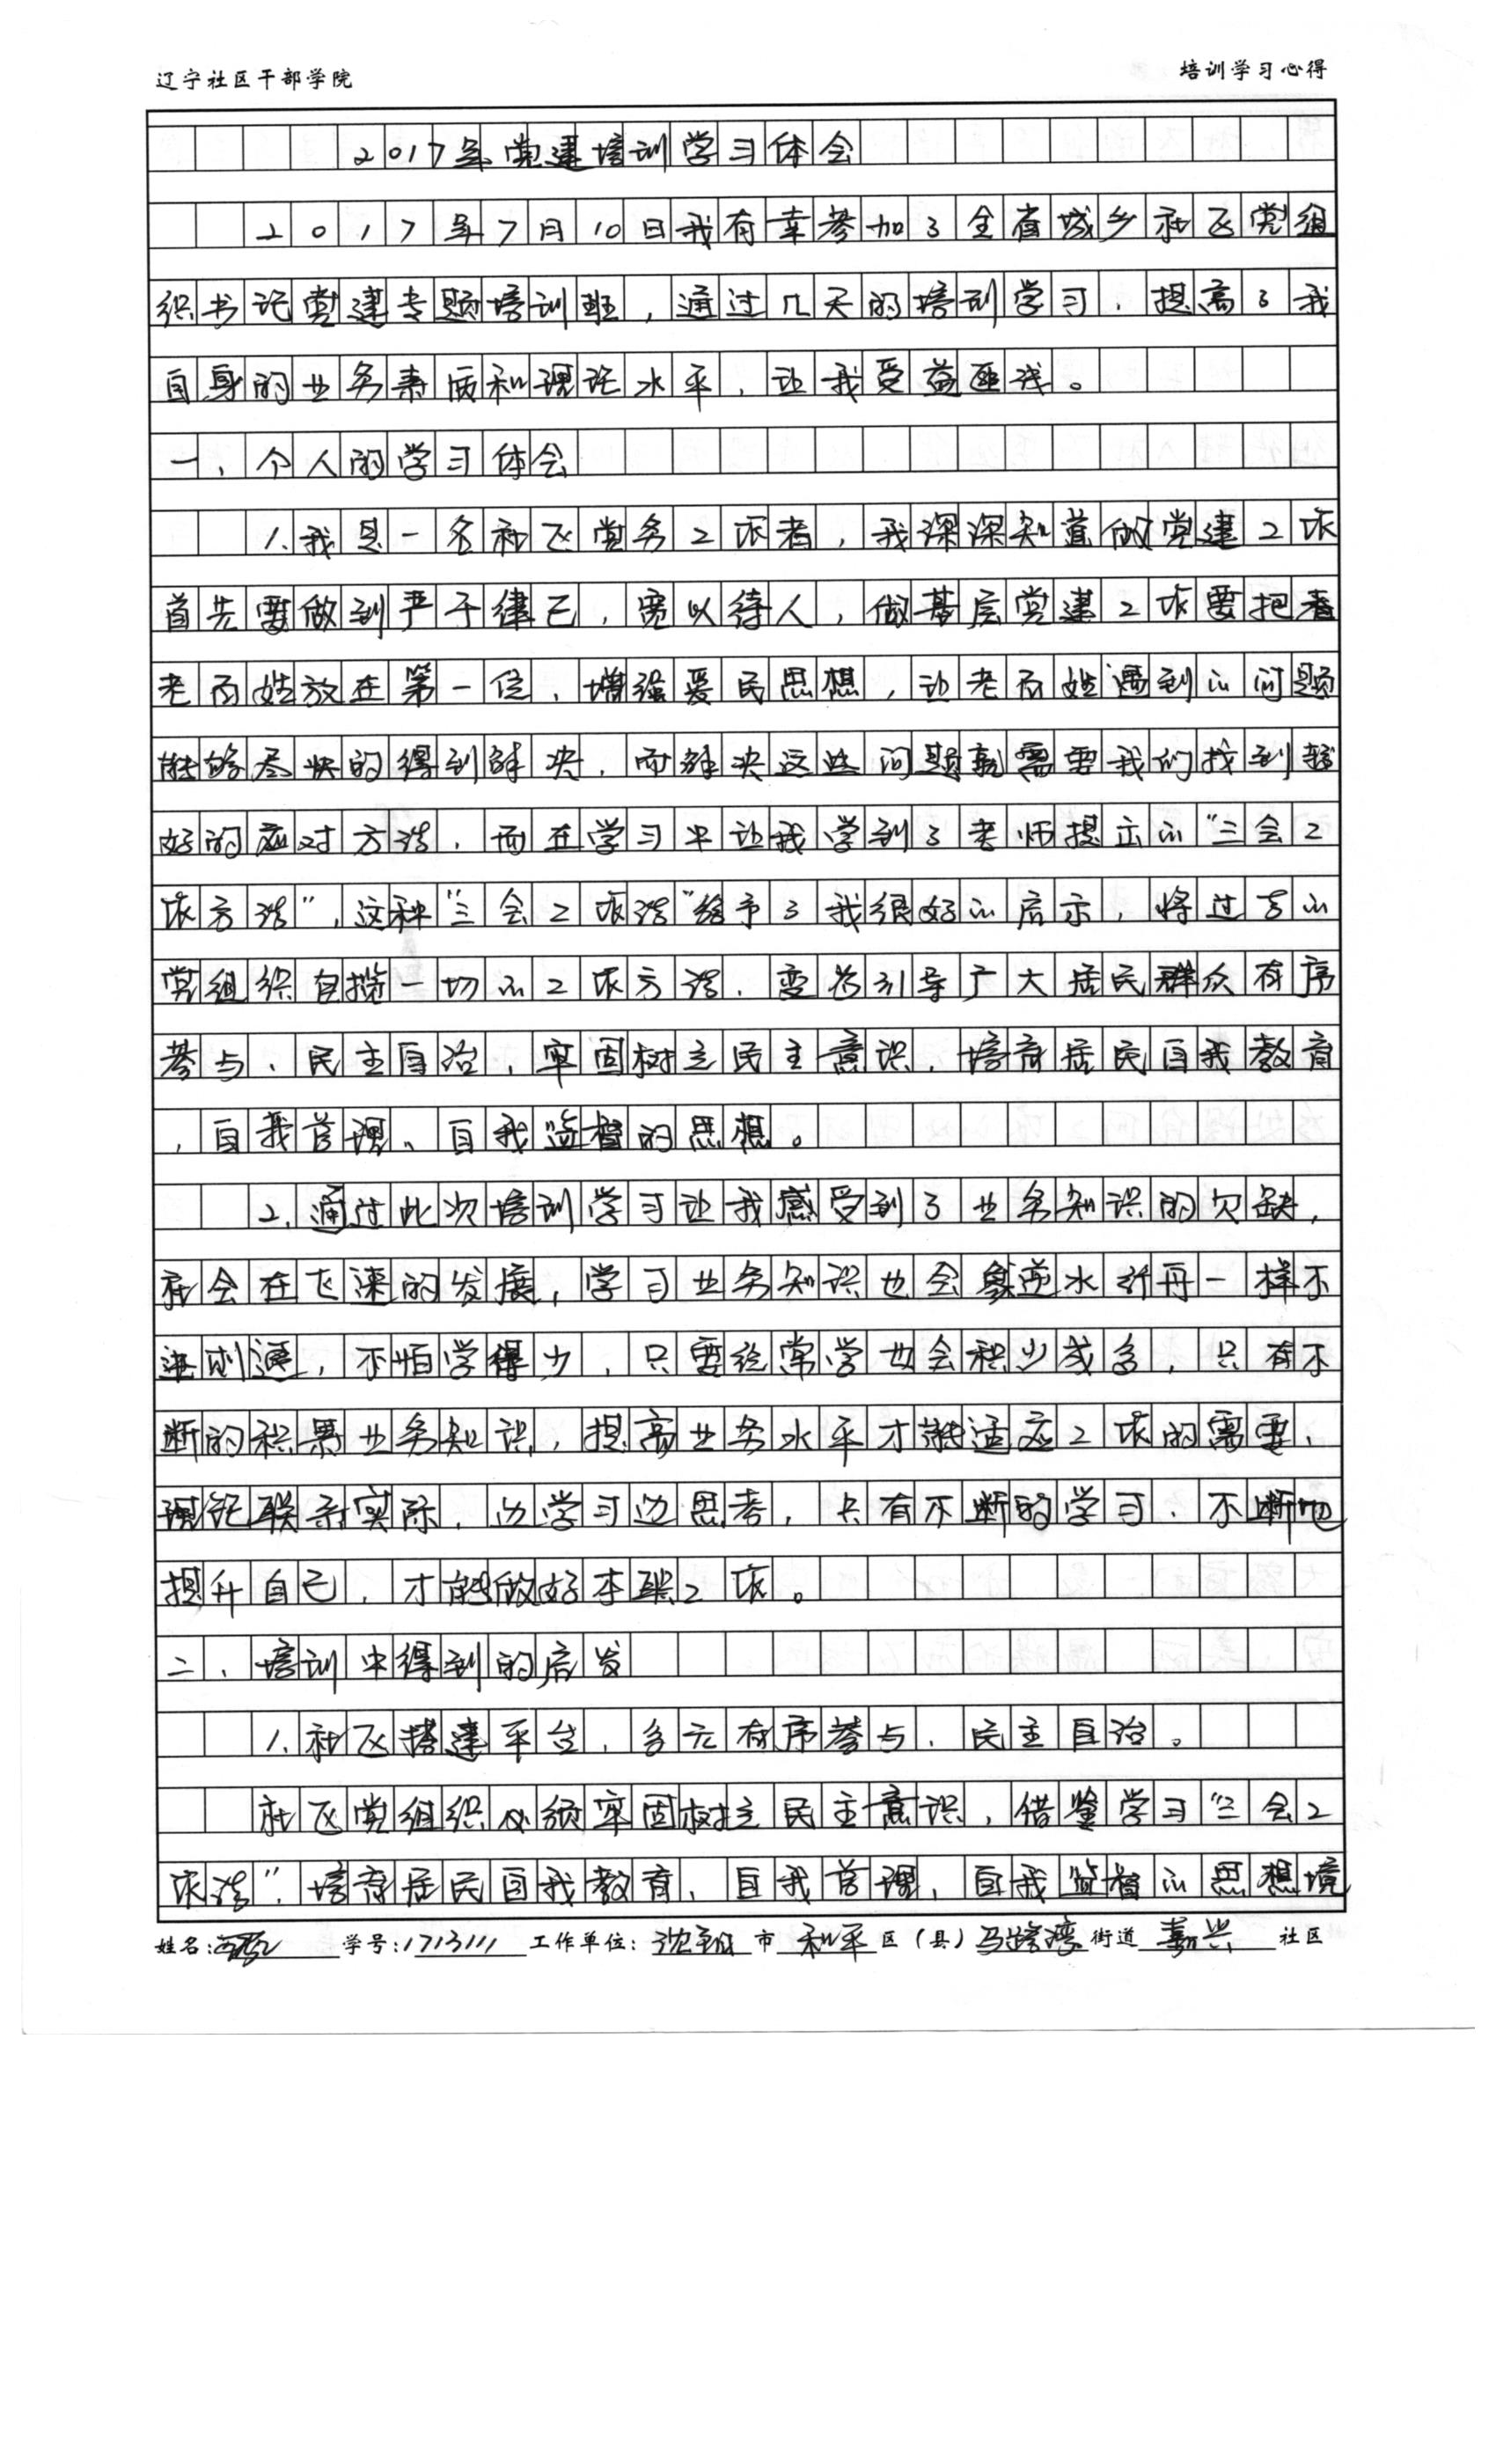 辽宁社区干部学院
培训学习心得
2017年党建培训学习体会
2017年7月10日我有幸参加了全省城乡社区党组
织书记党建专题培训班，通过几天的培训学习，提高了我
自身的业务素质和理论水平，让我受益匪浅。
一、个人的学习体会
1、我是一名社区党务工作者，我深深知道做党建工作
首先要做到严于律己，宽以待人，做基层党建工作要把
老百姓放在第一位，增强爱民思想，让老百姓遇到的问题
能够尽快的得到解决，而解决这些问题就需要我们找到较
好的应对方法，而在学习中让我学到了老师提出的“三会工
作方法”，这种“三会工作法”给予了我很好的启示，将过去的
党组织包揽一切的工作方法，变为引导广大居民群众有序
参与、民主自治，牢固树立民主意识，培育居民自我教育
、自我管理、自我监督的思想。
2、通过此次培训学习让我感受到了业务知识的欠缺，
社会在飞速的发展，学习业务知识也会象逆水行舟一样不
进则退，不怕学得少，只要经常学也会积少成多，只有不
断的积累业务知识，提高业务水平才能适应工作的需要，
理论联系实际，边学习边思考，只有不断的学习，不断地
提升自己，才能做好本职工作。
二、培训中得到的启发
1、社区搭建平台，多元有序参与，民主自治。
社区党组织必须牢固树立民主意识，借鉴学习“三会工
作法”，培育居民自我教育、自我管理、自我监督的思想境
姓名： 学号：1713111 工作单位：沈阳市 和平区（县）马路湾街道 嘉兴 社区